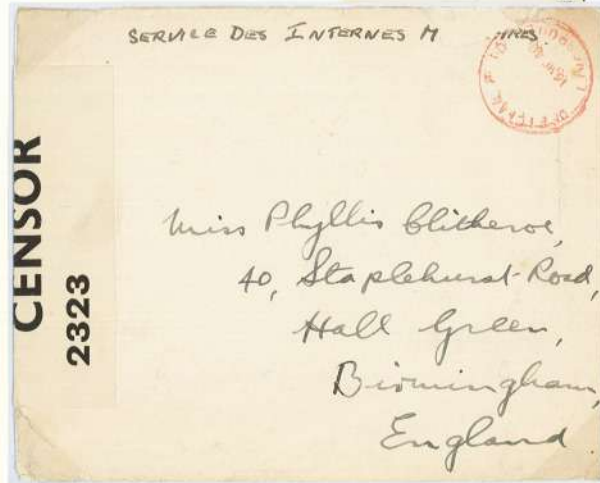 SERVICE DES INTERNES M IRES
CENSOR
2323
Miss Phyllis Clitheroe,
40, Staplehurst Road,
Hall Green,
Birmingham,
England